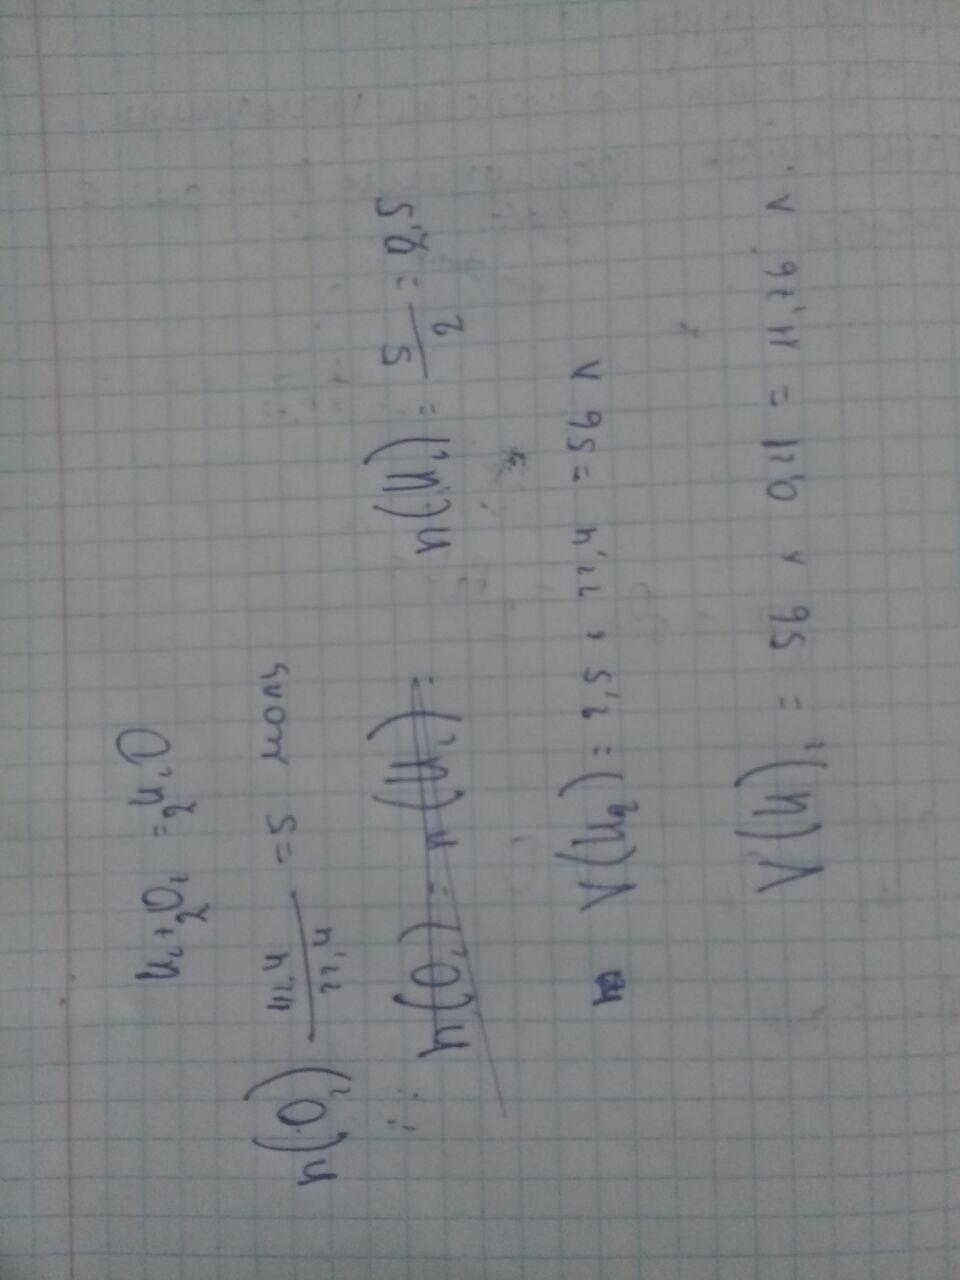 H₂ + 2O₂ = 2H₂O
n(O₂) 112,4/22,4 = 5 моль
n(O₂) = n(H₂) =
n(H₂) = 5/2 = 2,5
V(H₂) = 2,5 × 22,4 = 56 л
V(H₂) = 56 × 0,21 = 11,76 л